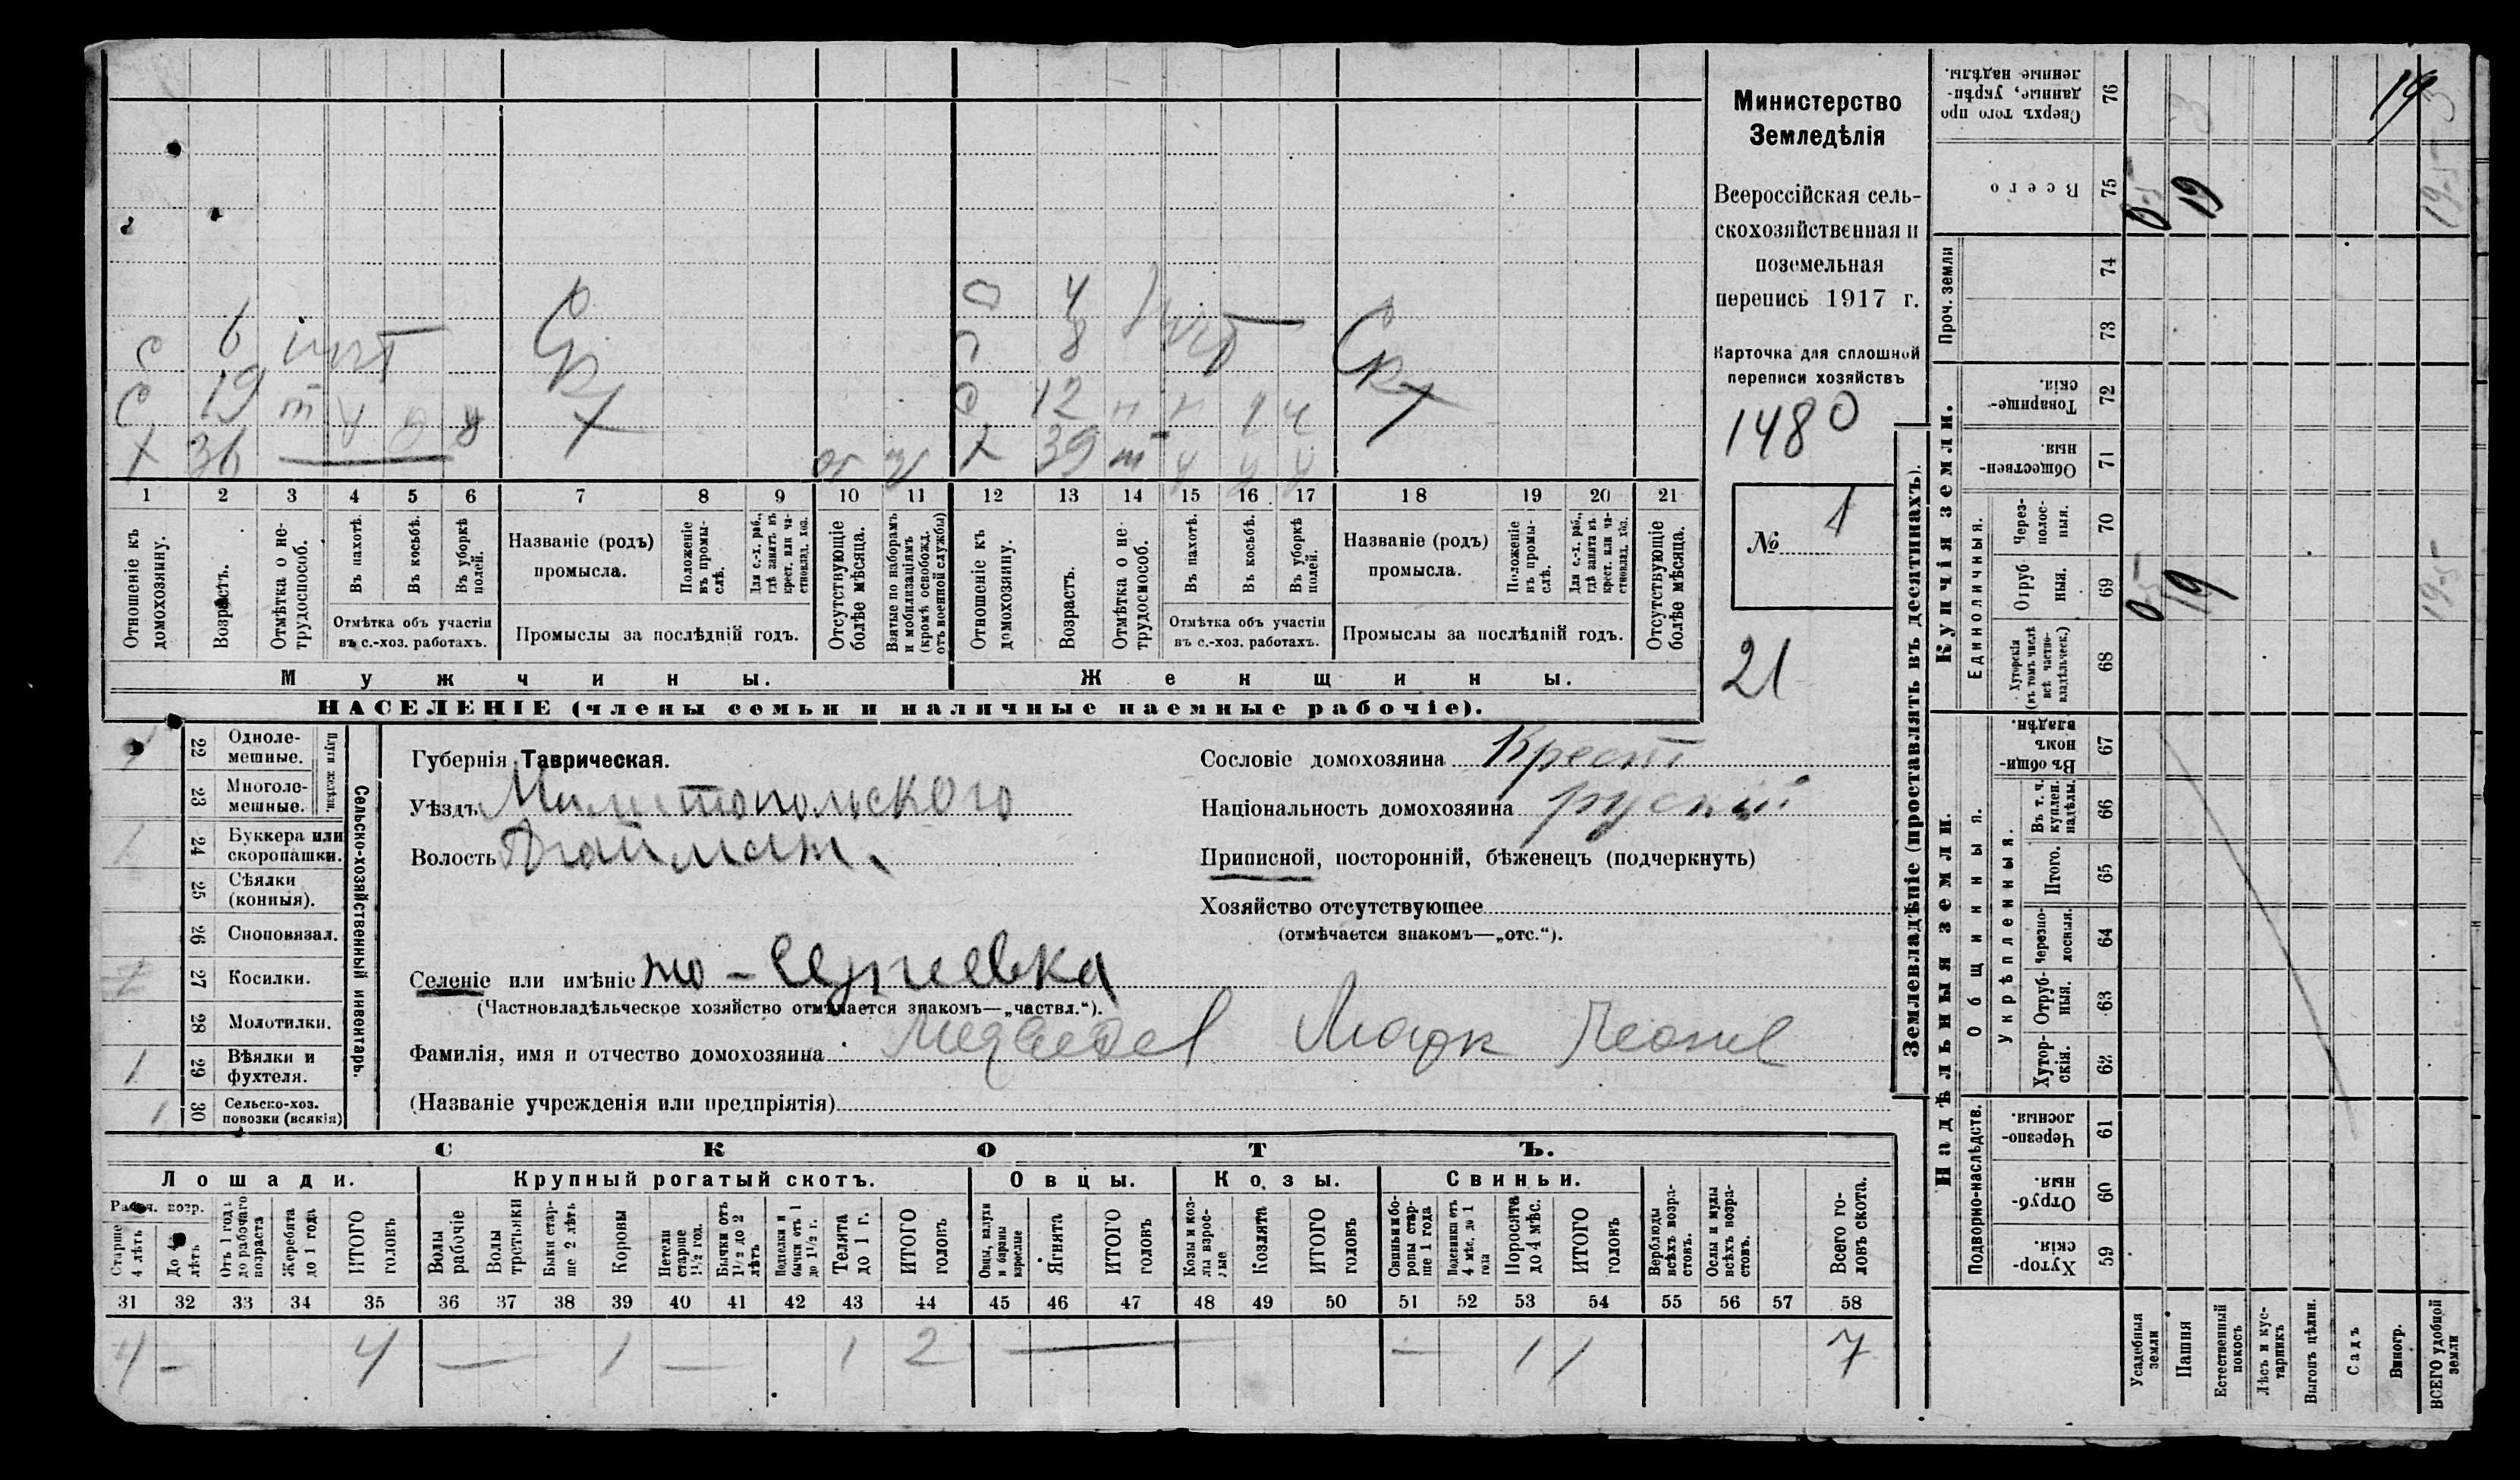 Министерство
Земледѣлія
Всероссійская сель-
скохозяйственная и
поземельная
перепись 1917 г.
Карточка для сплошной
переписи хозяйствъ
1480
№ 1
21
6
С 19 т
Х 36
4
8
12 н н
Х 39 т
1 2 3 4 5 6 7 8 9 10 11 12 13 14 15 16 17 18 19 20 21
Отношеніе къ домохозяину.
Возрастъ.
Отмѣтка о не-трудоспособ.
Въ пахотѣ.
Въ косьбѣ.
Въ уборкѣ полей.
Отмѣтка объ участіи
въ с.-хоз. работахъ.
Названіе (родъ)
промысла.
Положеніе въ промы-слѣ.
Для с.-х. раб., гдѣ занятъ въ крест. или ча-стновлад. хоз.
Промыслы за послѣдній годъ.
Отсутствующіе болѣе мѣсяца.
Взятые по наборамъ и мобилизаціямъ (кромѣ освобожд. отъ военной службы)
Отношеніе къ домохозяину.
Возрастъ.
Отмѣтка о не-трудоспособ.
Въ пахотѣ.
Въ косьбѣ.
Въ уборкѣ полей.
Отмѣтка объ участіи
въ с.-хоз. работахъ.
Названіе (родъ)
промысла.
Положеніе въ промы-слѣ.
Для с.-х. раб., гдѣ занята въ крест. или ча-стновлад. хоз.
Промыслы за послѣдній годъ.
Отсутствующіе болѣе мѣсяца.
Мужчины. Женщины.
НАСЕЛЕНІЕ (члены семьи и наличные наемные рабочіе).
Сельско-хозяйственный инвентарь.
22 Одноле-
мешные.
23 Многоле-
мешные.
24 Буккера или
скоропашки.
25 Сѣялки
(конныя).
26 Сноповязал.
27 Косилки.
28 Молотилки.
1 29 Вѣялки и
фухтеля.
1 30 Сельско-хоз.
повозки (всякія)
Губернія Таврическая.
Уѣздъ Мелитопольского
Волость Агайман.
Селеніе или имѣніе Ново-Сергеевка
(Частновладѣльческое хозяйство отмѣчается знакомъ—„частвл.“).
Фамилія, имя и отчество домохозяина Медведев Марк Леонт
(Названіе учрежденія или предпріятія)
Сословіе домохозяина Крест
Національность домохозяина руский
Приписной, посторонній, бѣженецъ (подчеркнуть)
Хозяйство отсутствующее
(отмѣчается знакомъ—„отс.“).
СКОТЪ.
Лошади. Крупный рогатый скотъ. Овцы. Козы. Свиньи.
Рабоч. возр.
Старше 4 лѣтъ
До 4 лѣтъ
Отъ 1 года до рабочаго возраста
Жеребята до 1 года
ИТОГО головъ
Волы рабочіе
Волы третьяки
Быки стар-ше 2 лѣтъ
Коровы
Нетели старше 1½ год.
Бычки отъ 1½ до 2 лѣтъ
Подтелки и бычки отъ 1 до 1½ г.
Телята до 1 г.
ИТОГО головъ
Овцы, валухи и бараны взрослые
Ягнята
ИТОГО головъ
Козы и коз-лы взрос-лые
Козлята
ИТОГО головъ
Свиньи и бо-ровы стар-ше 1 года
Подсвинки отъ 4 мѣс. до 1 года
Поросята до 4 мѣс.
ИТОГО головъ
Верблюды всѣхъ возра-стовъ.
Ослы и мулы всѣхъ возра-стовъ.
Всего го-ловъ скота.
31 32 33 34 35 36 37 38 39 40 41 42 43 44 45 46 47 48 49 50 51 52 53 54 55 56 57 58
4 – 4 – 1 – 1 2 — – 1 1 7
Землевладѣніе (проставлять въ десятинахъ).
Надѣльныя земли. Купчія земли.
Подворно-наслѣдств.
Общинныя.
Укрѣпленныя.
Единоличныя.
Проч. земли
Хутор-скія. 59
Отруб-ныя. 60
Черезпо-лосныя. 61
Хутор-скія. 62
Отруб-ныя. 63
Черезпо-лосныя. 64
Итого. 65
Въ т. ч. куплен. надѣлы. 66
Въ общи-номъ владѣн. 67
Хуторскія (въ томъ числѣ всѣ частно-владѣльческ.) 68
Отруб ныя. 69
Через-полос-ныя. 70
Обществен-ныя. 71
Товарище-скія. 72
73
74
Всего 75
Сверхъ того про данные, укрѣп-ленные надѣлы. 76
Усадебныя земли
Пашня
Естественный покосъ
Лѣсъ и кус-тарникъ
Выгонъ цѣлин.
Садъ
Виногр.
ВСЕГО удобной земли
19
19
19